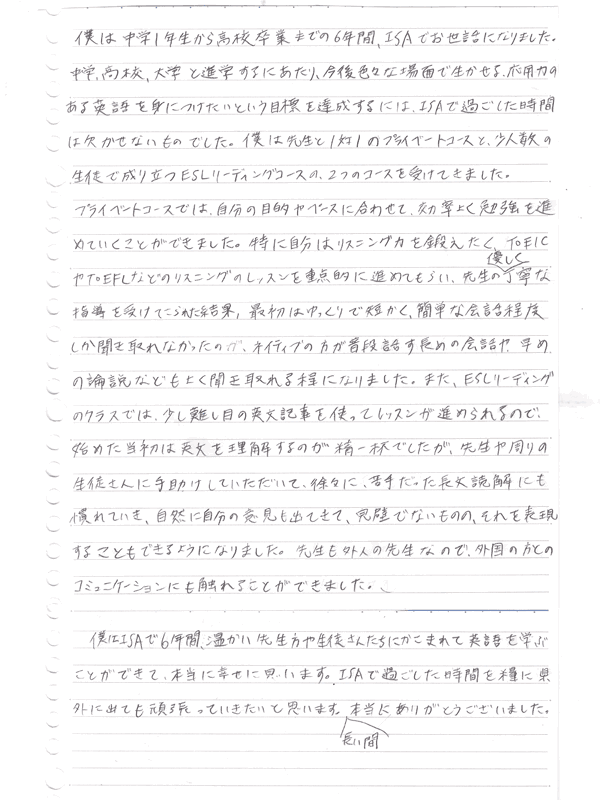 僕は中学1年生から高校卒業までの6年間、ISAでお世話になりました。
中学、高校、大学と進学するにあたり、今後色々な場面で生かせる、応用力の
ある英語を身につけたいという目標を達成するには、ISAで過ごした時間
は欠かせないものでした。僕は先生と1対1のプライベートコースと、少人数の
生徒で成り立つESLリーディングコースの、2つのコースを受けてきました。
プライベートコースでは、自分の目的やペースに合わせて、効率よく勉強を進
めていくことができました。特に自分はリスニング力を鍛えたく、TOEIC
優しく
やTOEFLなどのリスニングのレッスンを重点的に進めてもらい、先生の丁寧な
指導を受けてこられた結果、最初はゆっくりで短かく、簡単な会話程度
しか聞き取れなかったのが、ネイティブの方が普段話す長めの会話や、早め
の論説などもよく聞き取れる程になりました。また、ESLリーディング
のクラスでは、少し難し目の英文記事を使ってレッスンが進められるので、
始めた当初は英文を理解するのが精一杯でしたが、先生や周りの
生徒さんに手助けしていただいて、徐々に、苦手だった長文読解にも
慣れていき、自然に自分の意見も出てきて、完璧でないものの、それを表現
することもできるようになりました。先生も外人の先生なので、外国の方との
コミュニケーションにも触れることができました。
僕はISAで6年間、温かい先生方や生徒さんたちにかこまれて英語を学ぶ
ことができて、本当に幸せに思います。ISAで過ごした時間を糧に県
外に出ても頑張っていきたいと思います。本当にありがとうございました。
長い間